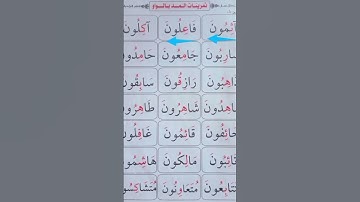 تدريبات المد بالواو
فَاعِلُونَ آكِلُونَ
ارِبُونَ جَامِعُونَ حَامِدُو
اهِبُونَ رَازِقُونَ سَابِقُون
اهِدُونَ شَاهِرُونَ طَاهِرُو
ائِفُونَ قَائِمُونَ غَافِلُو
ائِبُونَ مَالِكُونَ هَاشِمُو
تَتَابِعُونَ مُتَعَاوِنُونَ مُتَشَاكِسُو